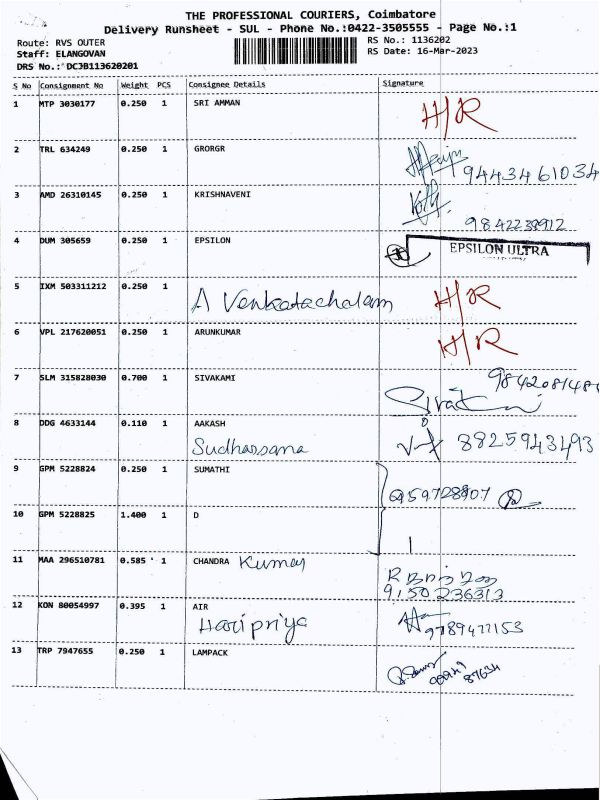 THE PROFESSIONAL COURIERS, Coimbatore
Delivery Runsheet - SUL - Phone No.:0422-3505555 - Page No.:1
Route: RVS OUTER RS No.: 1136202
Staff: ELANGOVAN RS Date: 16-Mar-2023
DRS No.: DCJB113620201
S No Consignment No Weight PCS Consignee Details Signature
1 MTP 3030177 0.250 1 SRI AMMAN H/R
2 TRL 634249 0.250 1 GRORGR 9443461034
3 AMD 26310145 0.250 1 KRISHNAVENI
9842238912
4 DUM 305659 0.250 1 EPSILON EPSILON ULTRA
5 IXM 503311212 0.250 1 A Venkatachalam H/R
6 VPL 217620051 0.250 1 ARUNKUMAR H/R
7 SLM 315828030 0.700 1 SIVAKAMI
8 DDG 4633144 0.110 1 AAKASH
Sudharsana 8825943493
9 GPM 5228824 0.250 1 SUMATHI
10 GPM 5228825 1.400 1 D
11 MAA 296510781 0.585 1 CHANDRA Kumar
9150236313
12 KON 80054997 0.395 1 AIR
Haripriya 9789477153
13 TRP 7947655 0.250 1 LAMPACK